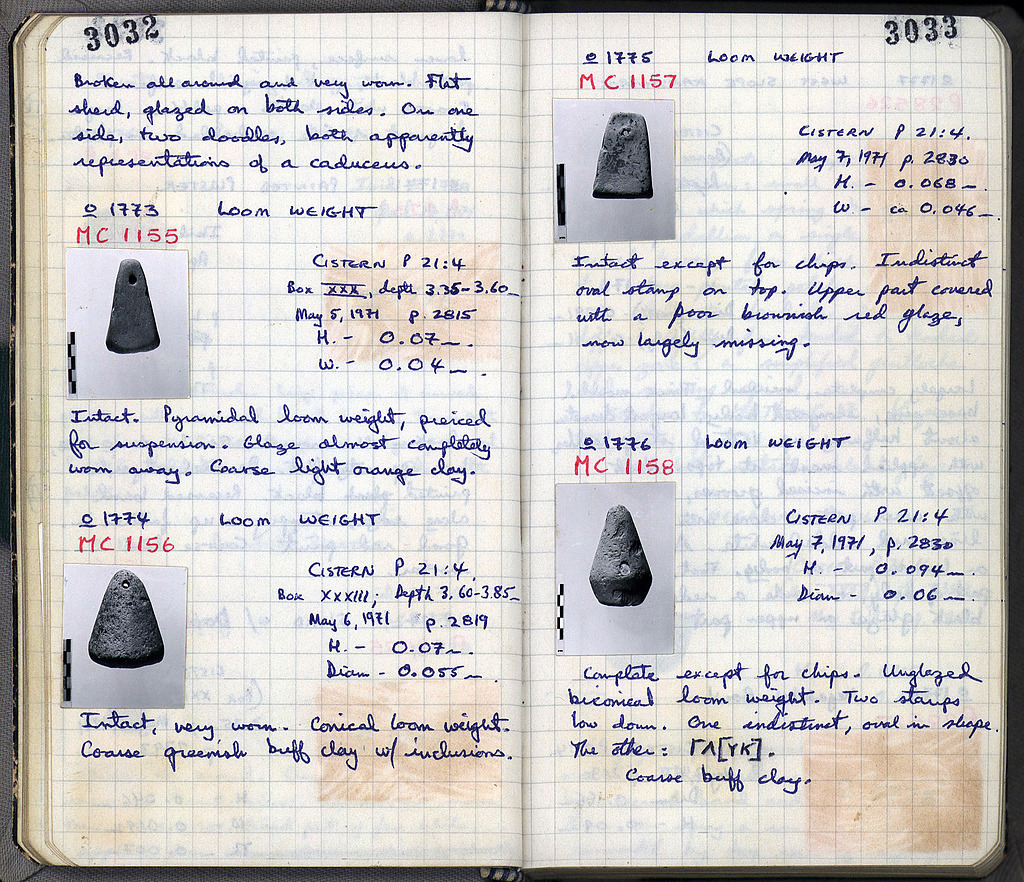 3032
Broken all around and very worn. Flat
sherd, glazed on both sides. On one
side, two doodles, both apparently
representations of a caduceus.
O 1773 LOOM WEIGHT
MC 1155
CISTERN P 21:4
Box XXX, depth 3.35-3.60
May 5, 1971 p. 2815
H. - 0.07 m.
W. - 0.04 m.
Intact. Pyramidal loom weight, preiced
for suspension. Glaze almost completely
worn away. Coarse light orange clay.
O 1774 LOOM WEIGHT
MC 1156
CISTERN P 21:4
Box XXXIII; Depth 3.60-3.85
May 6, 1971 p. 2819
H. - 0.07 m.
Diam - 0.055 m.
Intact, very worn. Conical loom weight.
Coarse greenish buff clay w/ inclusions.
3033
O 1775 LOOM WEIGHT
MC 1157
CISTERN P 21:4.
May 7, 1971 p. 2830
H. - 0.068 m.
W. - ca 0.046 m.
Intact except for chips. Indistinct
oval stamp on top. Upper part covered
with a poor brownish red glaze,
now largely missing.
O 1776 LOOM WEIGHT
MC 1158
CISTERN P 21:4
May 7, 1971, p. 2830
H. - 0.094 m.
Diam - 0.06 m.
Complete except for chips. Unglazed
biconical loom weight. Two stamps
low down. One indistinct, oval in shape.
The other: ΓΛ[ΥΚ].
Coarse buff clay.